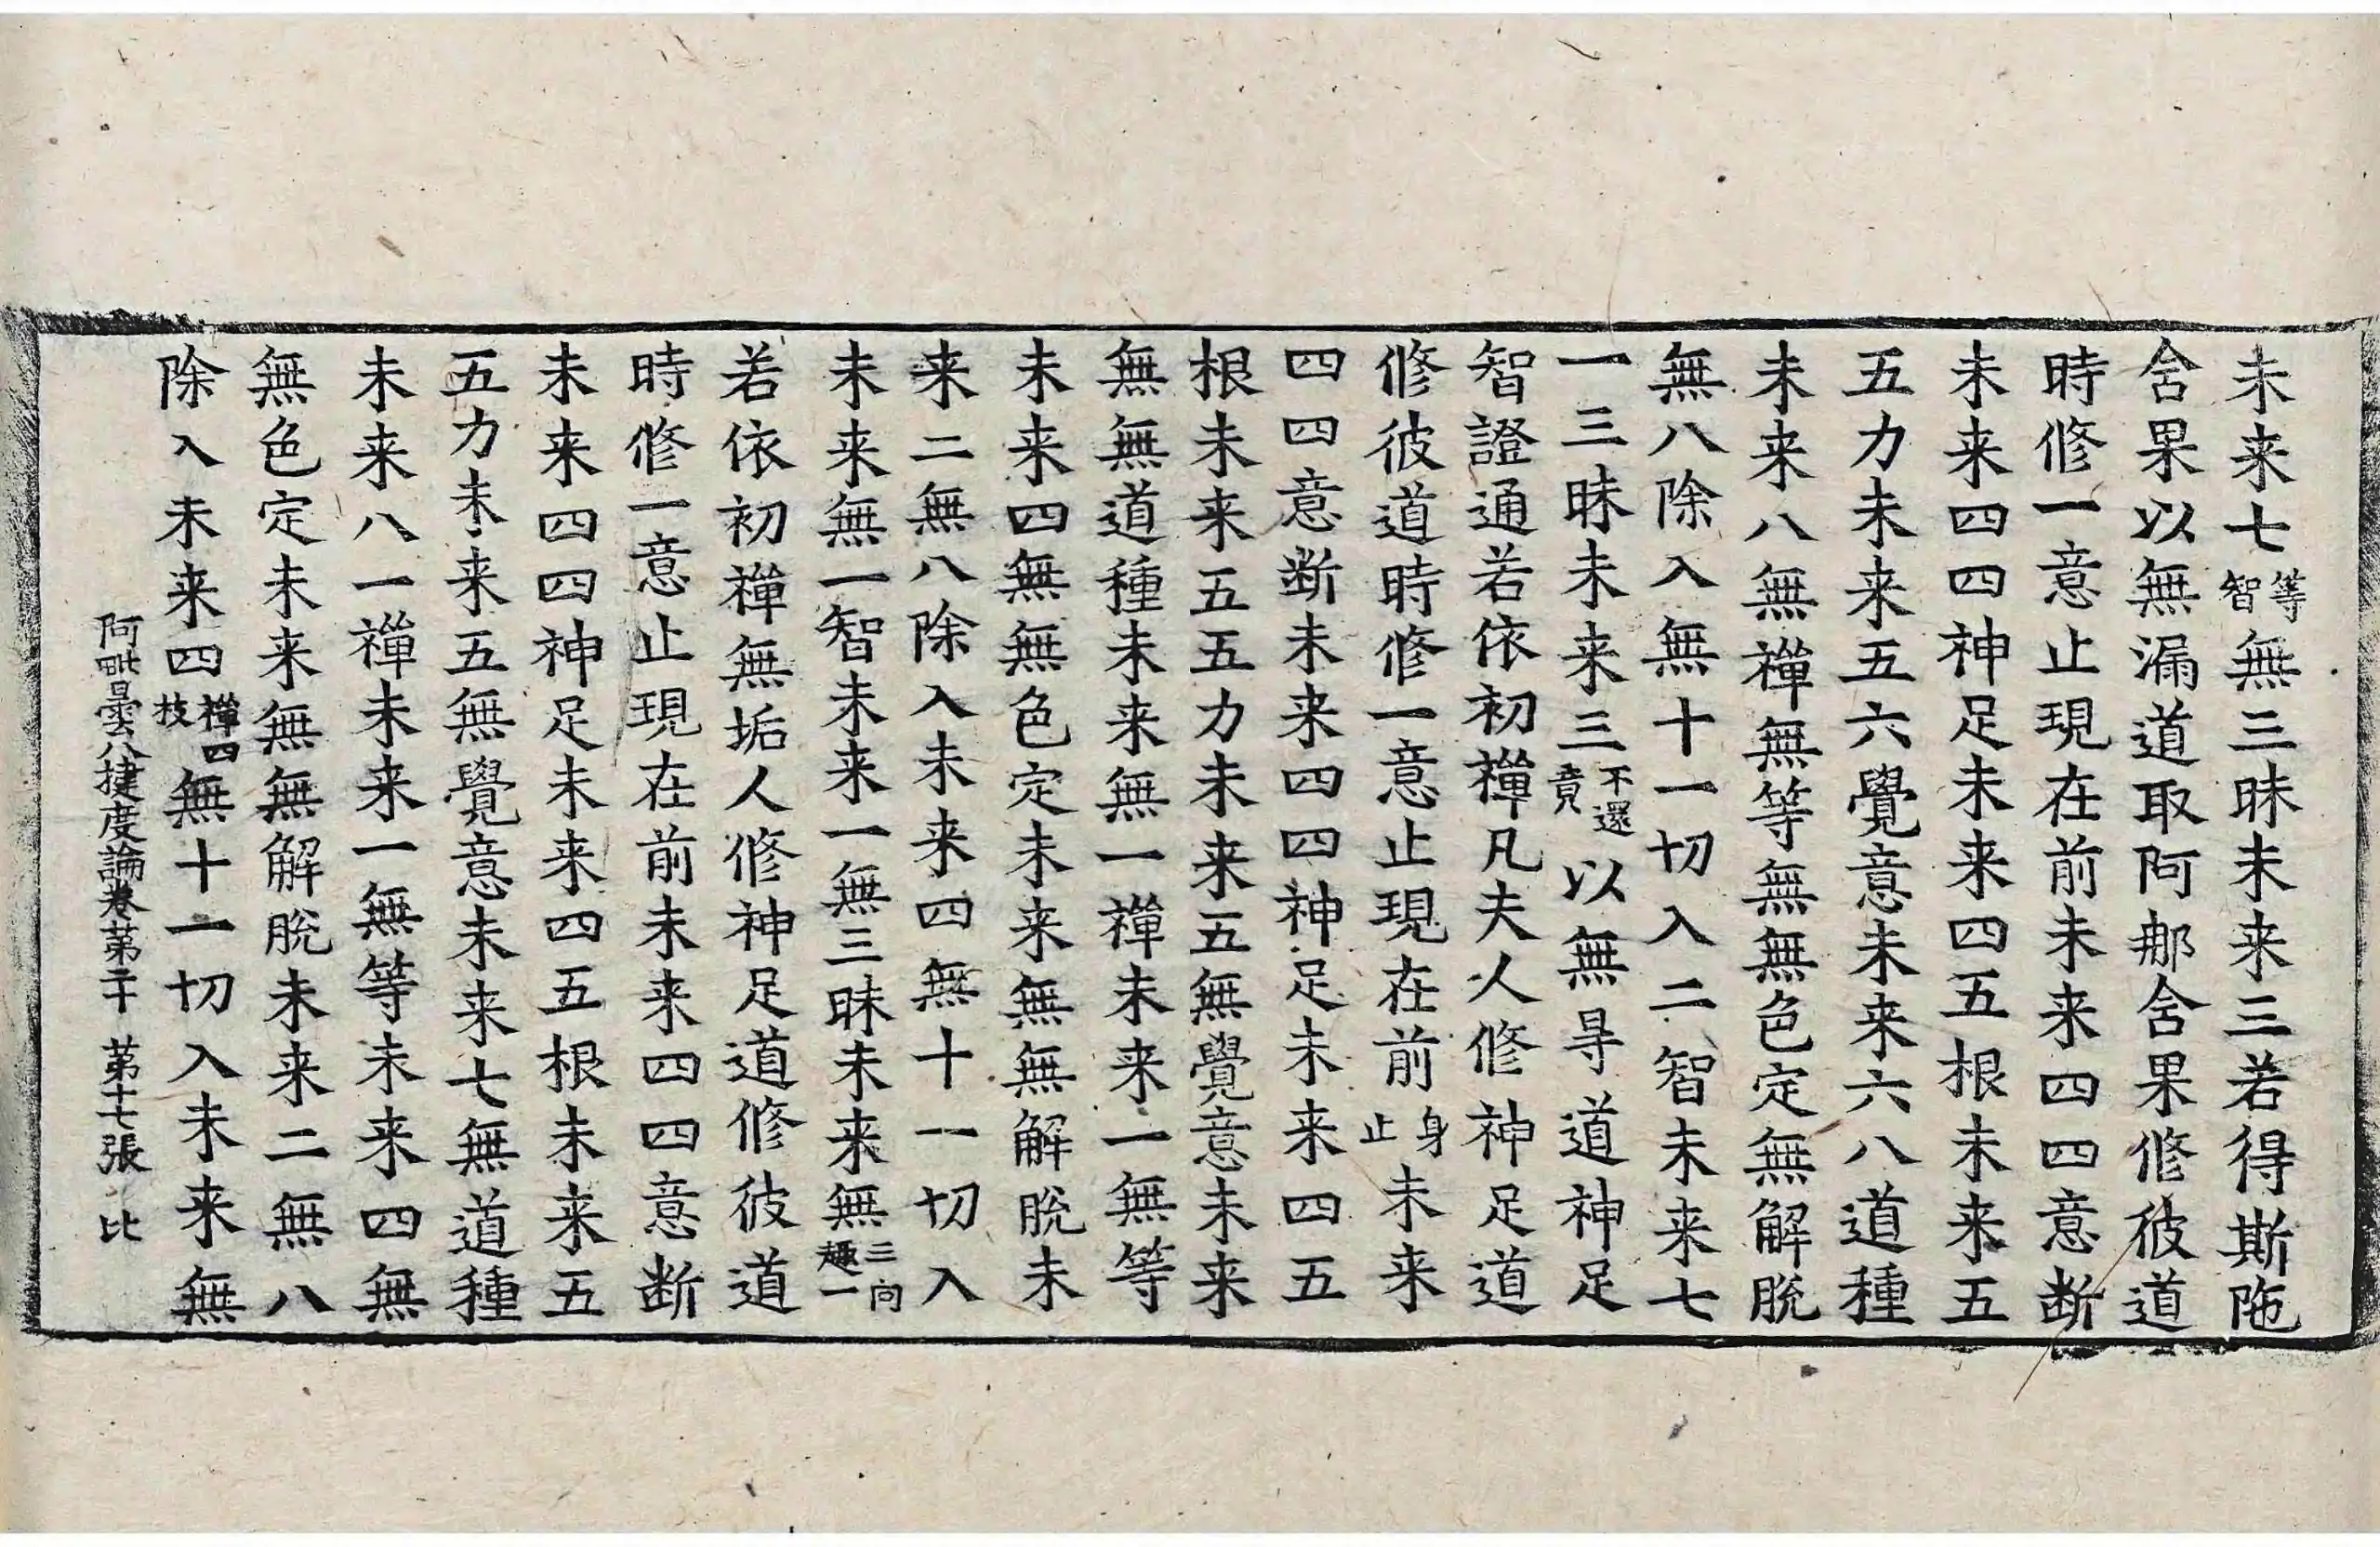 未来七等智無三昧未来三若得斯陁
含果以無漏道取阿那含果修彼道
時修一意止現在前未来四四意断
未来四四神足未来四五根未来五
五力未来五六覺意未来六八道種
未来八無禪無等無無色定無解脫
無八除入無十一切入二智未来七
一三昧未来三不還竟以無㝵道神足
智證通若依初禪凡夫人修神足道
修彼道時修一意止現在前身止未来
四四意断未来四四神足未来四五
根未来五五力未来五無覺意未来
無無道種未来無一禪未来一無等
未来四無無色定未来無無解脫未
来二無八除入未来四無十一切入
未来無一智未来一無三昧未来無三向趣一
若依初禪無垢人修神足道修彼道
時修一意止現在前未来四四意断
未来四四神足未来四五根未来五
五力未来五無覺意未来七無道種
未来八一禪未来一無等未来四無
無色定未来無無解脫未来二無八
除入未来四禪四枝無十一切入未来無
阿毗曇八揵度論卷第二十 第十七張 比